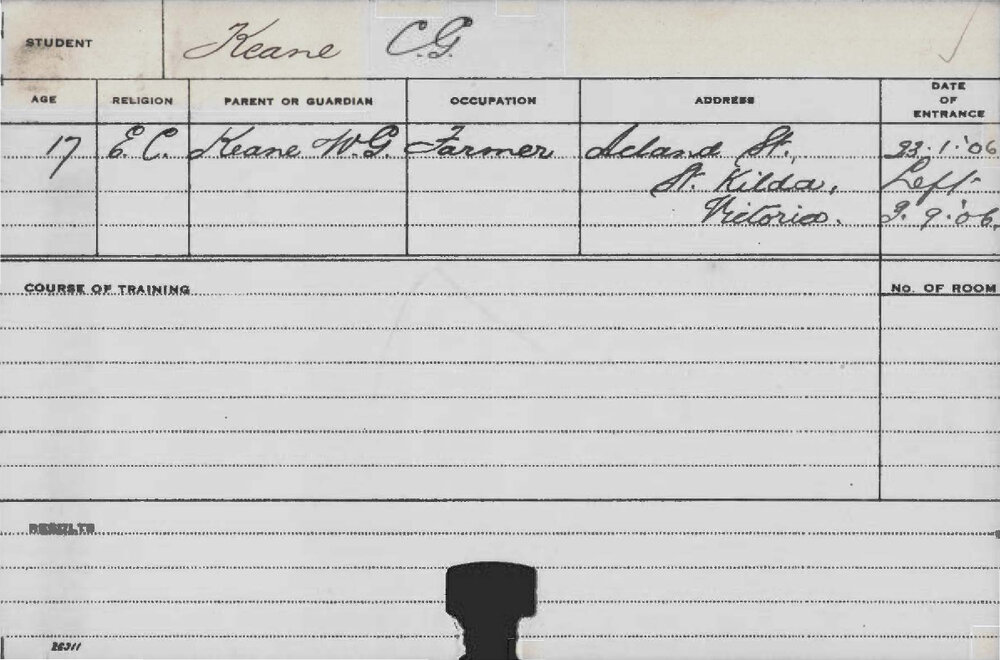 STUDENT Keane C.G.
AGE RELIGION PARENT OR GUARDIAN OCCUPATION ADDRESS DATE OF ENTRANCE
17 E.C. Keane W.G. Farmer Acland St., 23.1.'06
St. Kilda, Left
Victoria. 3.9.'06.
COURSE OF TRAINING No. OF ROOM
RESULTS